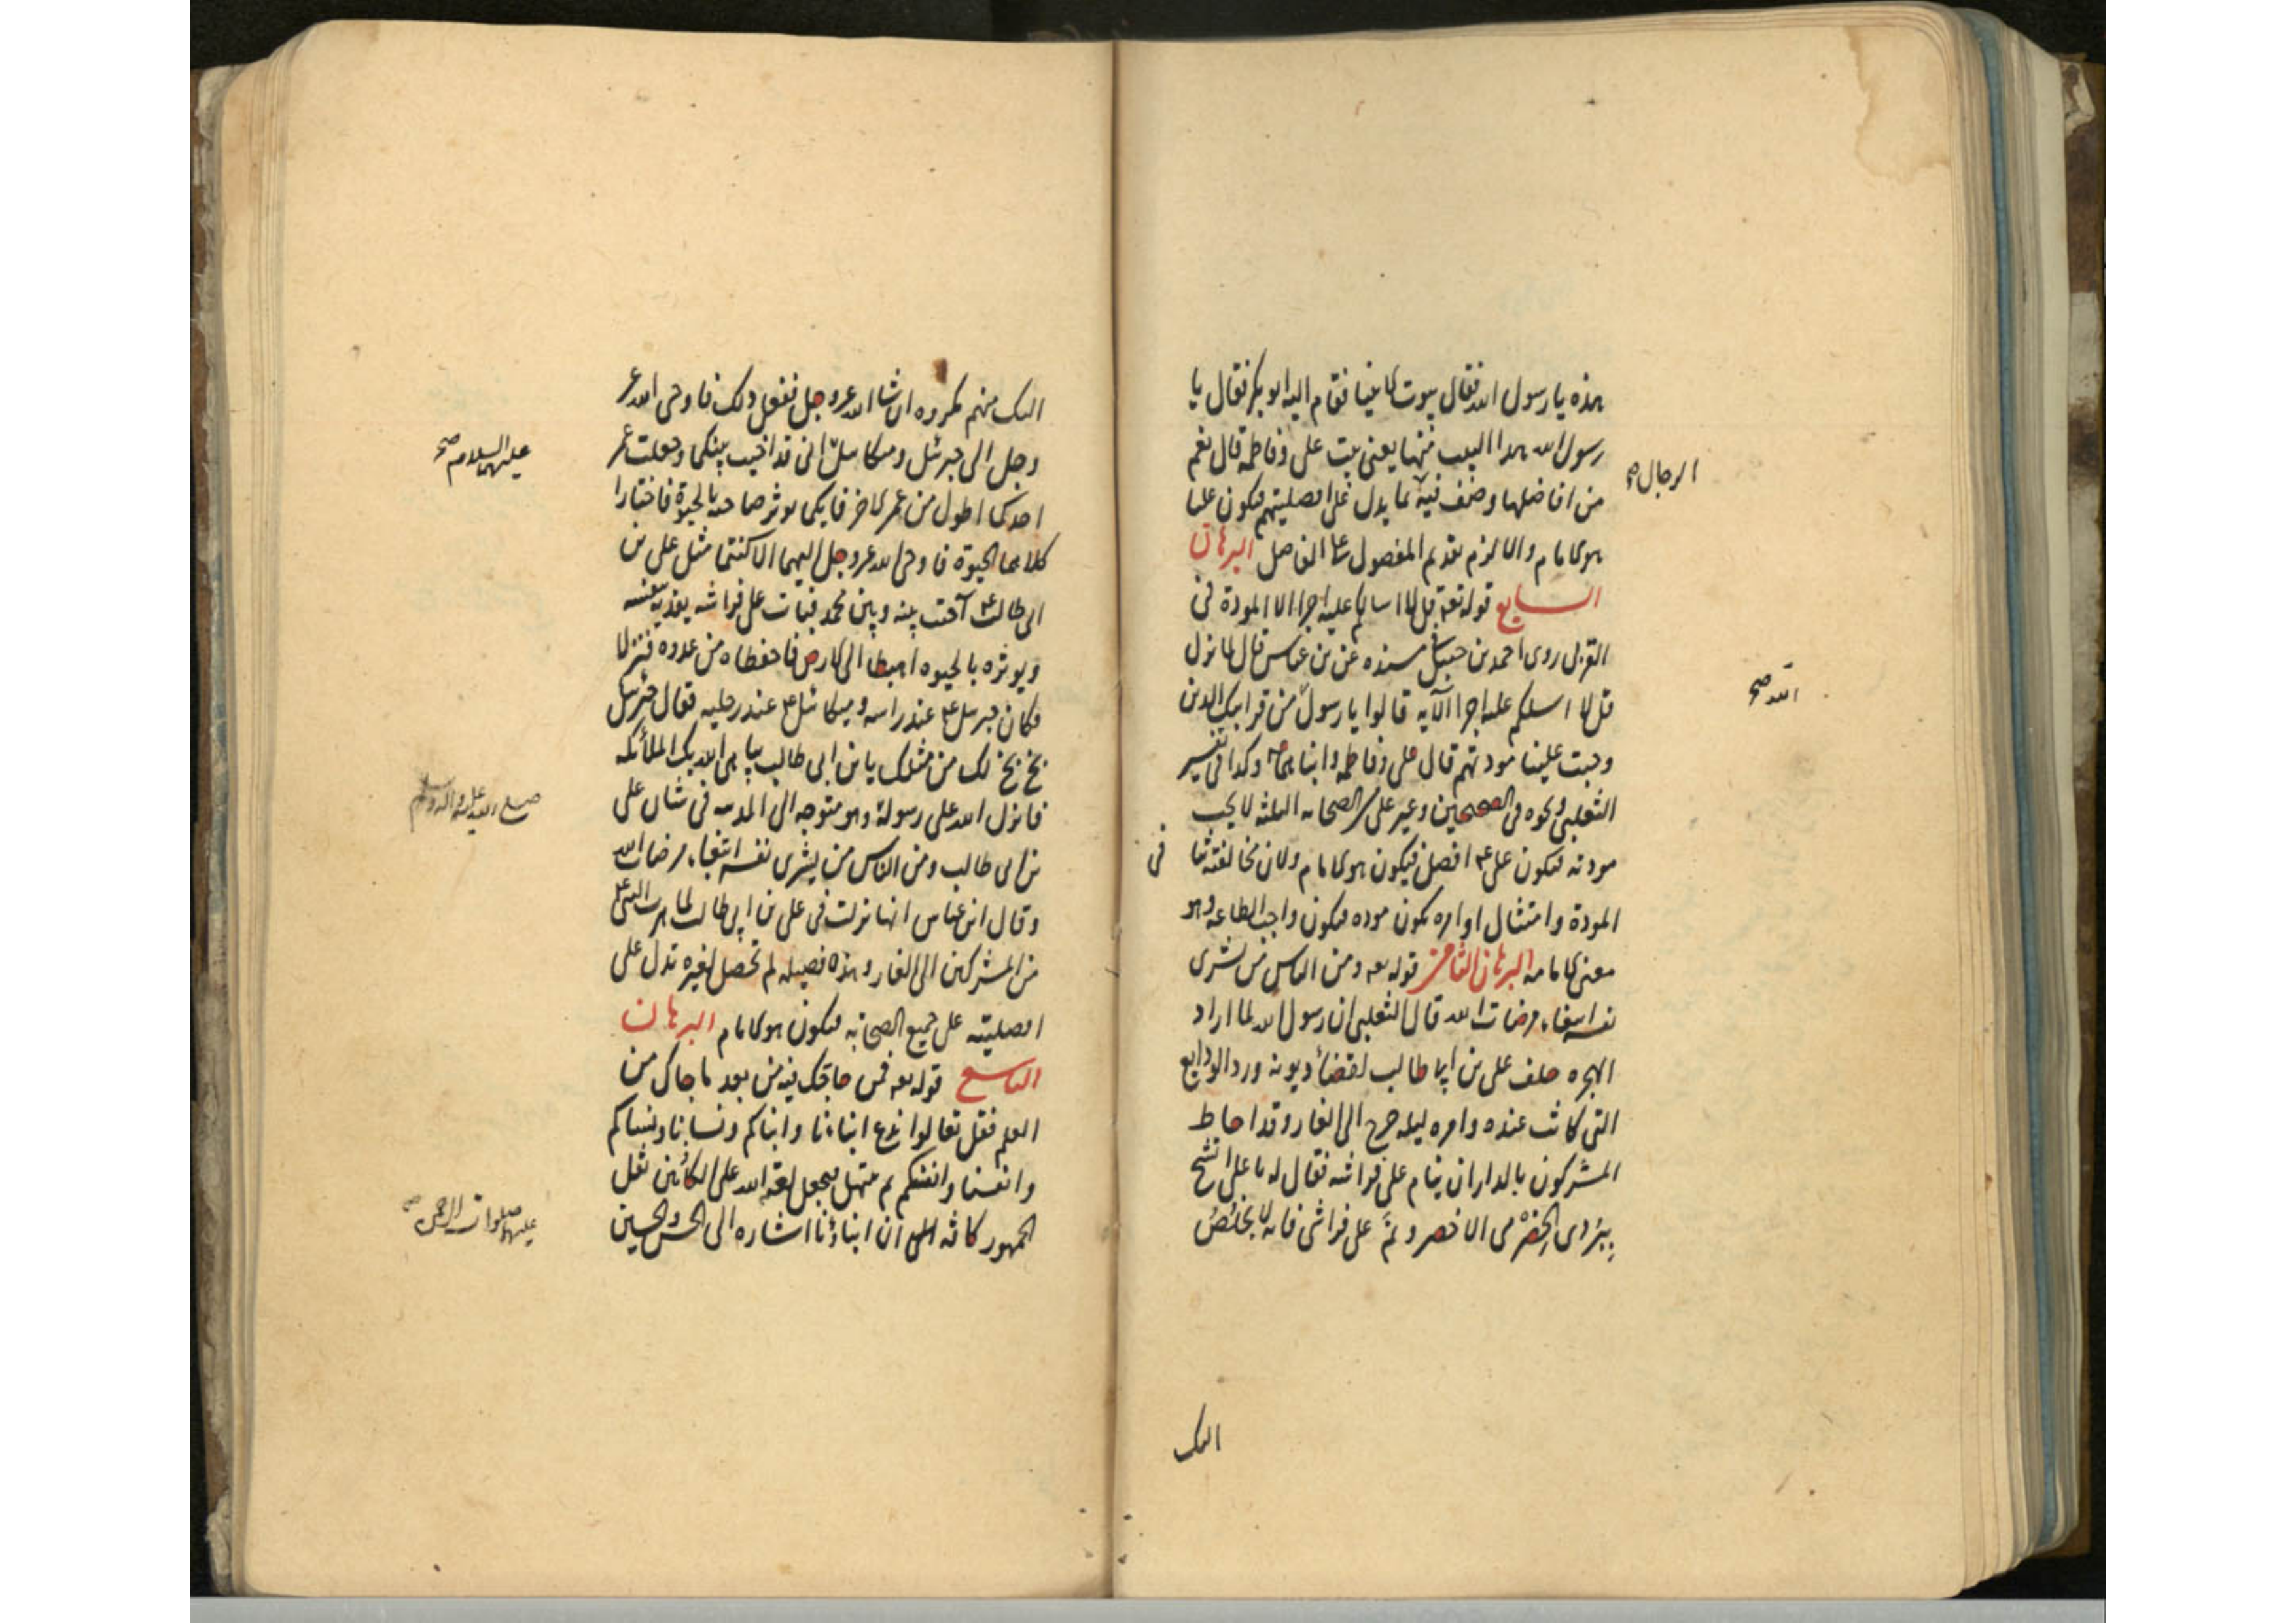 هذه يا رسول الله فقال بيوت الانبيا فقام اليه ابو بكر فقال يا
رسول الله هذا البيت منها يعنى بيت على وفاطمه قال نعم
من افاضلها وصف فيه الرجال بما يدل على افضليتهم فيكون عليا
هو الامام والا لزم تقديم المفضول على الفاضل البرهان
السابع قوله تعه قل لا اسالكم عليه اجرا الا المودة فى
القربى روى احمد بن حنبل فى مسنده عن بن عباس قال لما نزل
قل لا اسلكم عليه اجرا الآيه قالوا يا رسول الله من قرابتك الذين
وجبت علينا مودتهم قال على وفاطمه وابناهما وكذا فى تفسير
الثعلبى ونحوه فى الصحيحين وغير على من الصحابه الثلثه لا يجب
مودته فيكون على ع افضل فيكون هو الامام ولان مخالفته تنا فى
المودة وامتثال اوامره يكون موده فيكون واجب الطاعه وهو
معنى الامامه البرهان الثامن قوله تعه ومن الناس من يشرى
نفسه ابتغاء مرضات الله قال الثعلبى ان رسول الله لما اراد
الهجره خلف على بن ابى طالب لقضاء ديونه ورد الودايع
التى كانت عنده وامره ليله خرج الى الغار وقد احاط
المشركون بالدار ان ينام على فراشه فقال له يا على اتشح
ببردى الحضرمى الاخضر ونم على فراشى فانه لا يخلص
اليك
اليك منهم مكروه ان شا الله عز وجل ففعل ذلك فاوحى الله عز
وجل الى جبرئيل وميكائيل عليهما السلام صح انى قد اخيت بينكما وجعلت عمر
احدكما اطول من عمر الاخر فايكما يوثر صاحبه بالحيوة فاختارا
كلاهما الحيوة فاوحى الله عز وجل اليهما الا كنتما مثل على بن
ابى طالب ع آخيت بينه وبين محمد فبات على فراشه يفديه بنفسه
ويوثره بالحيوه اهبطا الى الارض فاحفظاه من عدوه فنزلا
فكان جبرئيل ع عند راسه وميكائيل ع عند رجليه فقال جبرئيل
بخ بخ لك من مثلك يا بن ابى طالب يباهى الله بك الملائكه
فانزل الله على رسوله صلى الله عليه واله وسلم وهو متوجه الى المدينه فى شان على
بن ابى طالب ومن الناس من يشرى نفسه ابتغاء مرضات الله
وقال ابن عباس انها نزلت فى على بن ابى طالب لما هرب النبى ع
من المشركين الى الغار وهذه فضيله لم تحصل لغيره تدل على
افضليته على جميع الصحابه فيكون هو الامام البرهان
التاسع قوله تعه فمن حاجك فيه من بعد ما جاك من
العلم فقل تعالوا ندع ابناءنا وابناكم ونسانا ونساكم
وانفسنا وانفسكم ثم نبتهل فنجعل لعنه الله على الكاذبين نقل
الجمهور كافه ان ابناؤنا اشاره الى الحسن والحسين
عليهما صلوات الرحمن صح